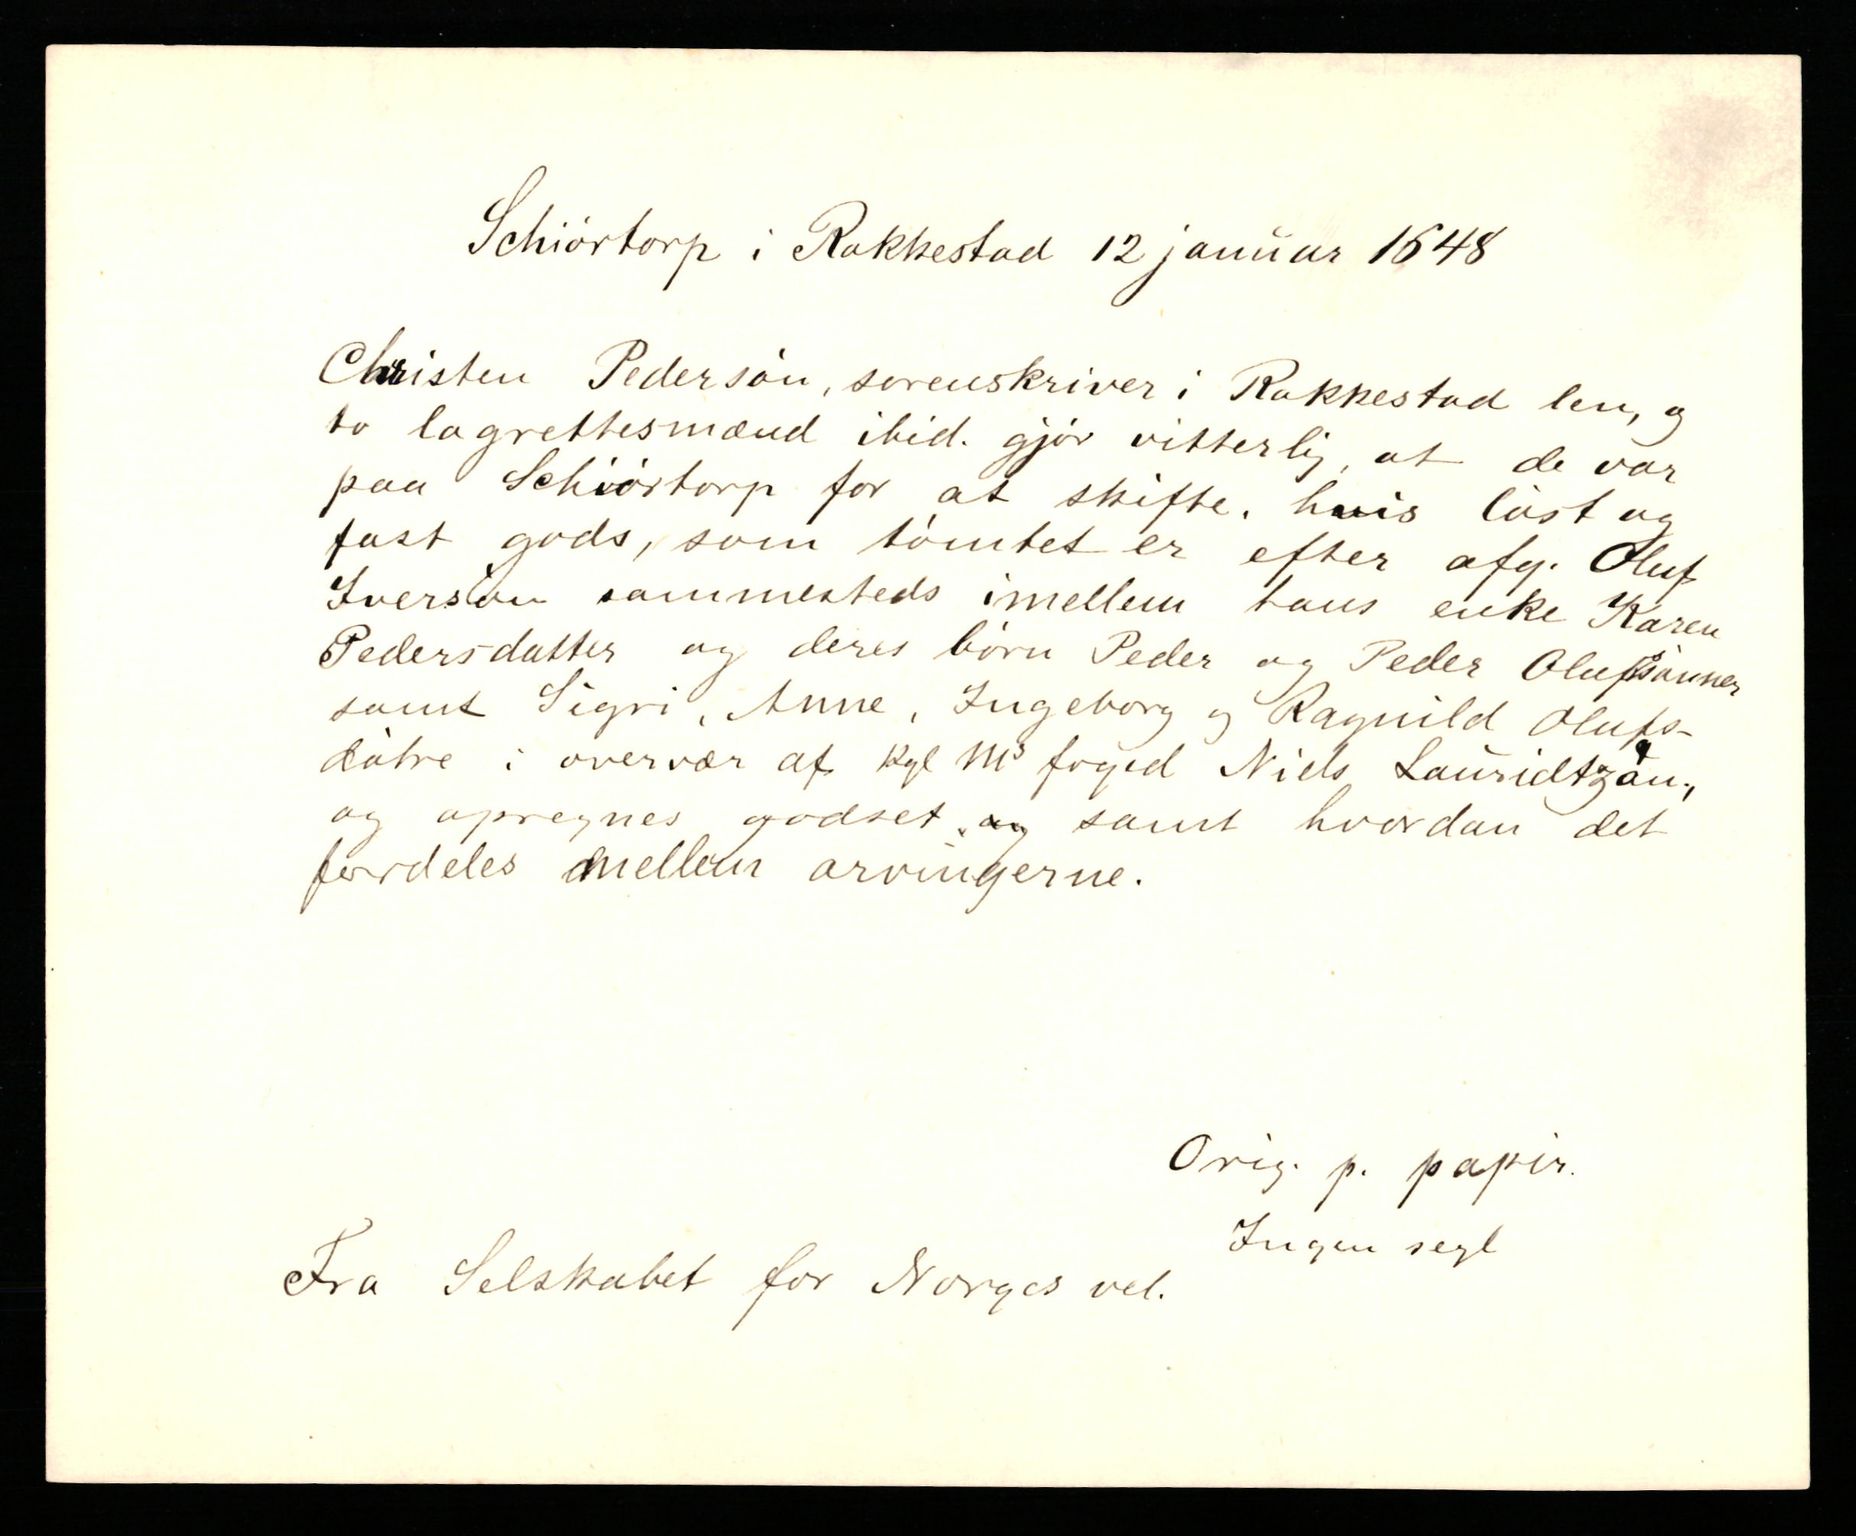 Schiörtorp i Rakkestad 12 januar 1648
Christen Pedersön, sorenskriver i Rakkestad len, og
to lagrettesmænd ibid. gjör vitterlig, at de var
paa Schiörtorp for at skifte, huis löst og
fast gods, som tömtet er efter afg. Oluf
Iversön sammesteds imellem hans enke Karen
Pedersdatter og deres börn Peder og Peder Olufssönner
samt Sigri, Anne, Ingeborg og Ragnild Olufs-
döttre i overvær af kgl Ms foged Niels Lauridtzön,
og opregnes godset, samt hvordan det
fordeles mellem arvingerne.
Orig. p. papir.
Ingen segl
Fra Selskabet for Norges vel.